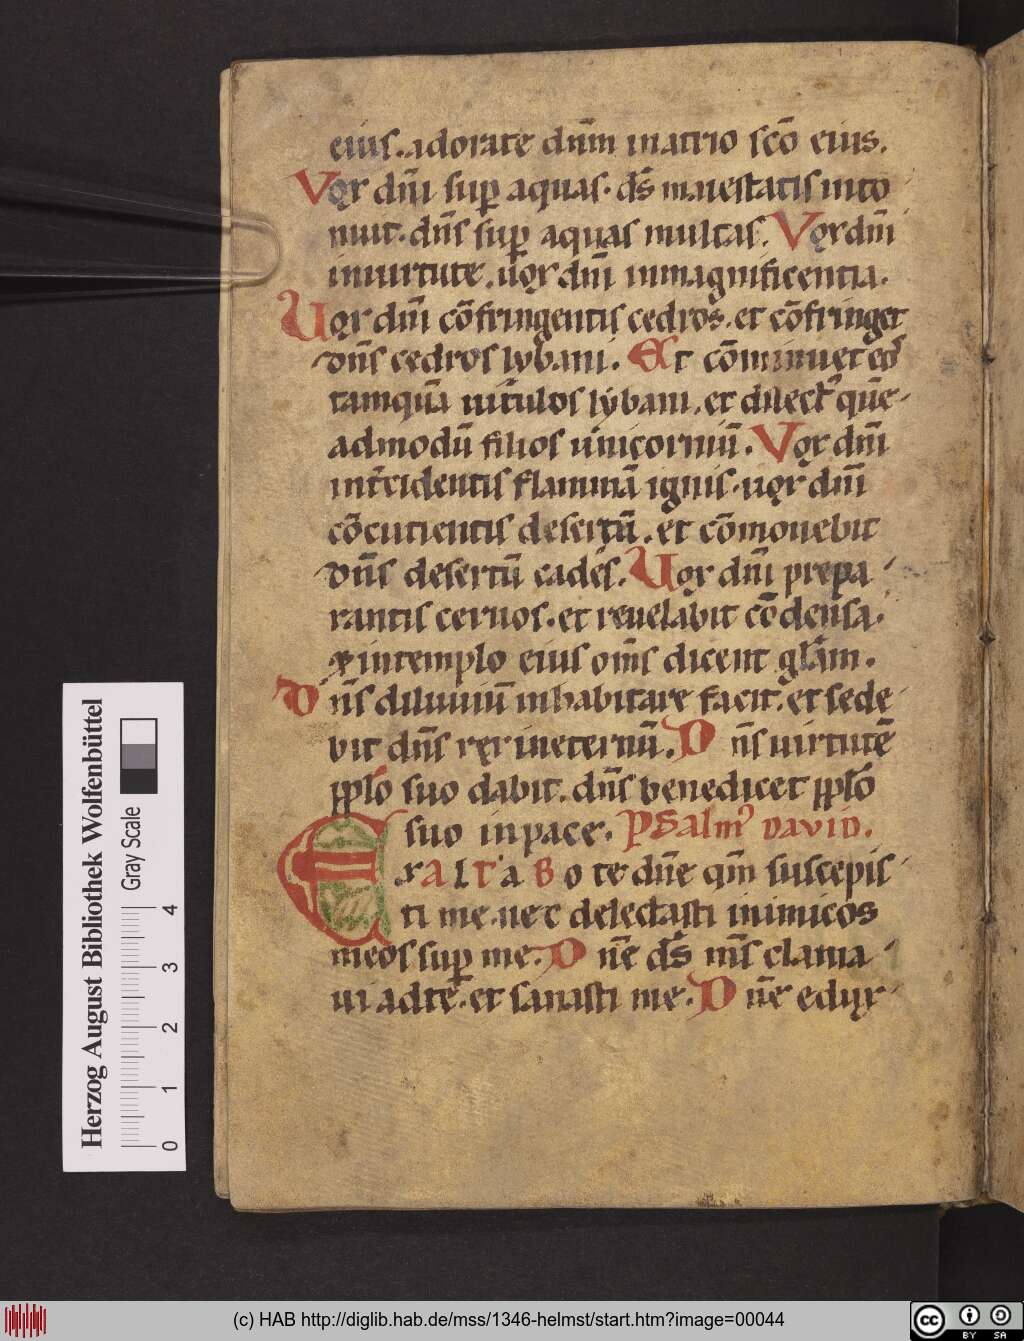 eius. adorate dñm inatrio scō eius.
Vox dñi sup aquas. ds̄ maiestatis into
nuit. dñs sup aquas multas. Vox dñi
inuirtute. uox dñi inmagnificentia.
Uox dñi cōfringentis cedros. et cōfringet
dñs cedros lybani. Et cōminuet eos
tamquā uitulos lybani. et dilect' quē
admodū filios unicorniū. Vox dñi
int'cidentis flammā ignis. uox dñi
cōcutientis desertū. et cōmouebit
dñs desertū cades. Uox dñi prepa
rantis ceruos. et reuelabit cōdensa.
et intemplo eius om̄s dicent glām.
Dñs diluuiū inhabitare facit. et sede
bit dñs rex ineternū. Dñs uirtutē
pplo suo dabit. dñs benedicet pplo
suo inpace. Psalm' DAVID.
ExAlTaBo te dñe qm̄ suscepis
ti me. nec delectasti inimicos
meos sup me. Dñe ds̄ ms̄ clama
ui adte. et sanasti me. Dñe edux
Herzog August Bibliothek Wolfenbüttel
Gray Scale
0 1 2 3 4
(c) HAB http://diglib.hab.de/mss/1346-helmst/start.htm?image=00044
cc BY SA